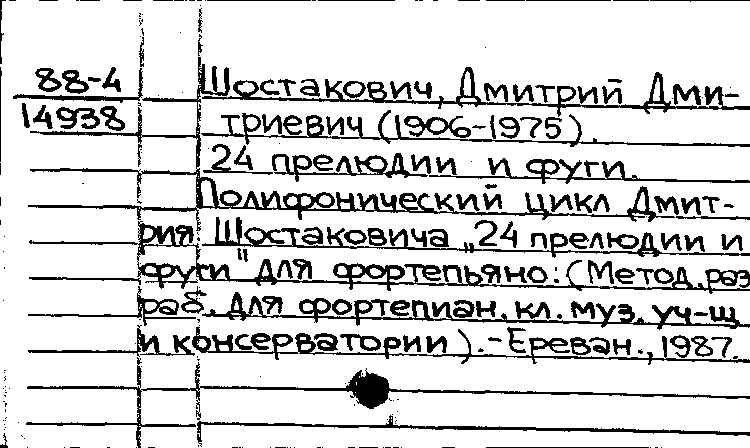 88-4 Шостакович, Дмитрий Дми-
14938 триевич (1906-1975).
24 прелюдии и фуги.
Полифонический цикл Дмит-
рия Шостаковича „24 прелюдии и
фуги" для фортепьяно: (Метод. раз
раб. для фортепиан. кл. муз. уч-щ
и консерватории). - Ереван., 1987.